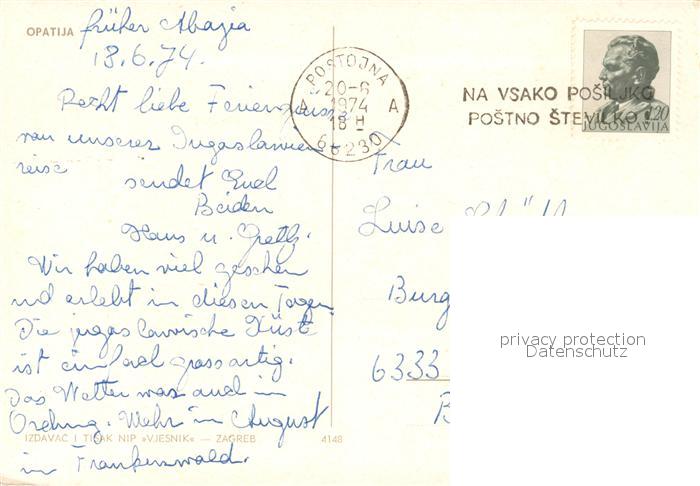 OPATIJA
früher Abazia
18.6.74.
Recht liebe Feriengrüsse
von unserer Jugoslawien-
reise
sendet Euch
Beiden
Hans u.
Wir haben viel gesehen
und erlebt in diesen Tagen.
Die jugoslawische Küste
ist einfach grossartig.
Das Wetter war auch in
Ordnung. Mehr im August
im Frankenwald.
IZDAVAČ I TISAK NIP »VJESNIK« — ZAGREB
4148
POSTOJNA
20-6
A 1974 A
18 H
66230
NA VSAKO POŠILJKO
POŠTNO ŠTEVILKO
1,20
JUGOSLAVIJA
Frau
Luise
Burg
6333
B
privacy protection
Datenschutz